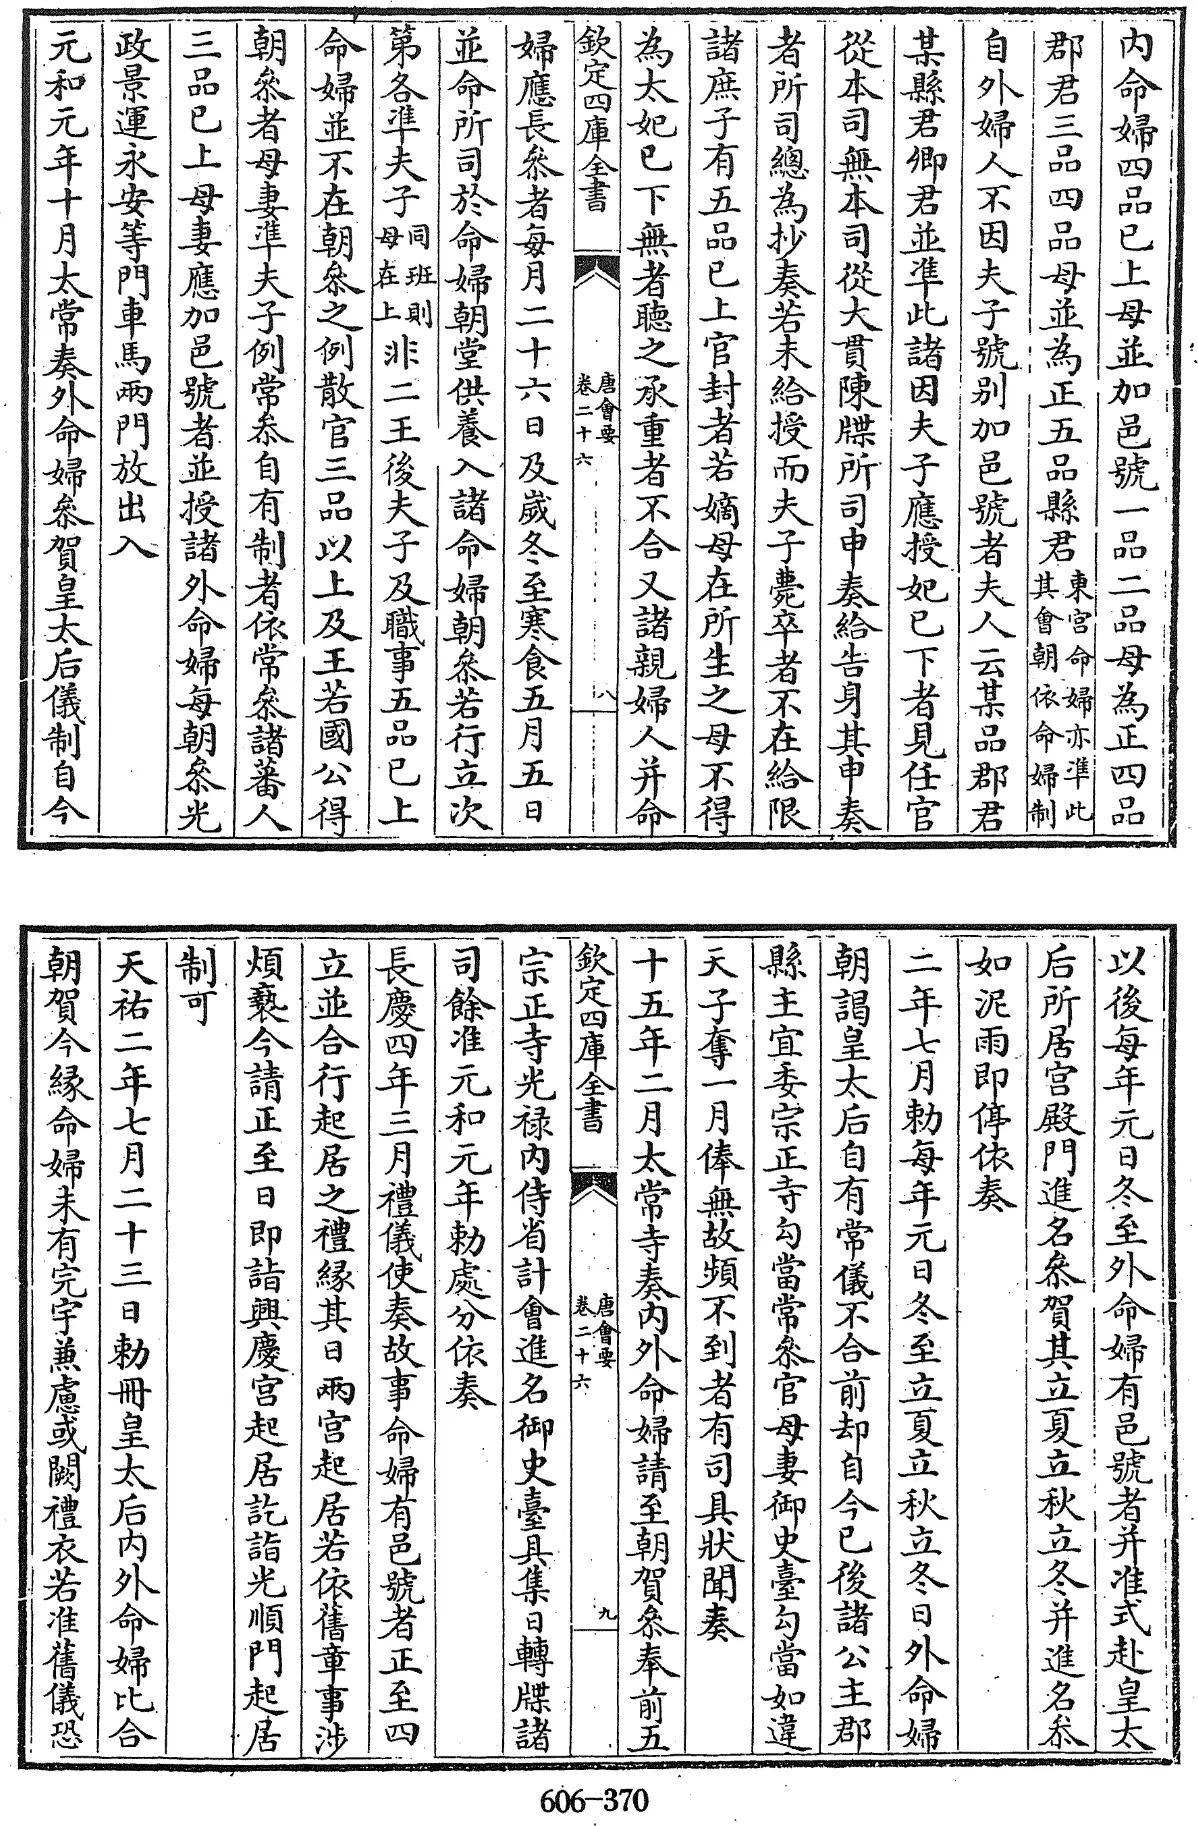 内命婦四品已上母並加邑號一品二品母為正四品
郡君三品四品母並為正五品縣君東宮命婦亦準此其會朝依命婦制
自外婦人不因夫子號別加邑號者夫人云某品郡君
某縣君鄉君並準此諸因夫子應授妃已下者見任官
從本司無本司從大貫陳牒所司申奏給告身其申奏
者所司總為抄奏若未給授而夫子薨卒者不在給限
諸庶子有五品已上官封者若嫡母在所生之母不得
為太妃已下無者聽之承重者不合又諸親婦人并命
欽定四庫全書 唐會要 卷二十六 八
婦應長參者每月二十六日及歲冬至寒食五月五日
並命所司於命婦朝堂供養入諸命婦朝參若行立次
第各準夫子同班則母在上非二王後夫子及職事五品已上
命婦並不在朝參之例散官三品以上及王若國公得
朝參者母妻準夫子例常叅自有制者依常參諸蕃人
三品已上母妻應加邑號者並授諸外命婦每朝參光
政景運永安等門車馬兩門放出入
元和元年十月太常奏外命婦參賀皇太后儀制自今
以後每年元日冬至外命婦有邑號者并准式赴皇太
后所居宮殿門進名參賀其立夏立秋立冬并進名叅
如泥雨即停依奏
二年七月勅每年元日冬至立夏立秋立冬日外命婦
朝謁皇太后自有常儀不合前却自今已後諸公主郡
縣主宜委宗正寺勾當常參官母妻御史臺勾當如違
天子奪一月俸無故頻不到者有司具狀聞奏
十五年二月太常寺奏內外命婦請至朝賀參奉前五
欽定四庫全書 唐會要 卷二十六 九
宗正寺光祿內侍省計會進名御史臺具集日轉牒諸
司餘准元和元年勅處分依奏
長慶四年三月禮儀使奏故事命婦有邑號者正至四
立並合行起居之禮緣其日兩宮起居若依舊章事涉
煩褻今請正至日即詣興慶宮起居訖詣光順門起居
制可
天祐二年七月二十三日勅冊皇太后內外命婦比合
朝賀今緣命婦未有完宇兼慮或闕禮衣若准舊儀恐
606-370